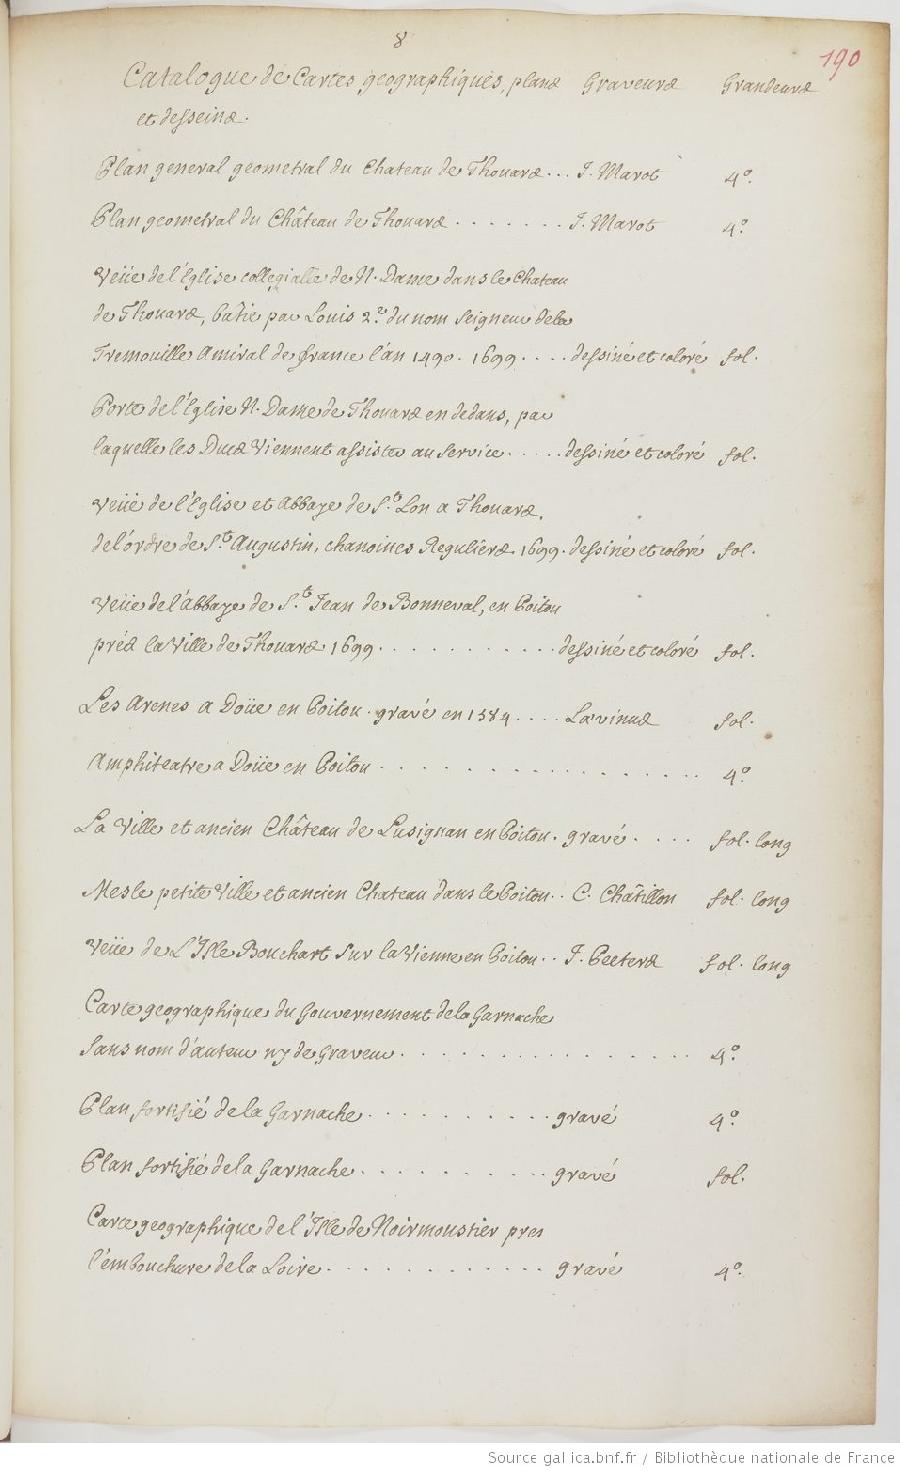 8
190
Catalogue de Cartes geographiques, plans Graveurs Grandeurs
et desseins.
Plan general geometral du Chateau de Thouars... J. Marot 4°.
Plan geometral du Château de Thouars . . . . . . . J. Marot 4°.
Veüe de l'Eglise collegialle de N. Dame dans le Chateau
de Thouars, bâtie par Louis 2.e du nom Seigneur de la
Tremouille Amiral de france l'an 1490. 1699 . . . . dessiné et coloré fol.
Porte de l'Eglise N. Dame de Thouars en dedans, par
laquelle les Ducs Viennent assister au Service . . . . . dessiné et coloré fol.
Veüe de l'Eglise et Abbaye de S.t Lon a Thouars,
de l'ordre de S.t Augustin, chanoines Reguliers. 1699. dessiné et coloré fol.
Veüe de l'Abbaye de S.t Jean de Bonneval, en Poitou
prés la Ville de Thouars 1699. . . . . . . . . . . . dessiné et coloré fol.
Les Arenes a Doüe en Poitou. gravé en 1584 . . . . La vinus fol.
Amphiteatre a Doüe en Poitou . . . . . . . . . . . . . . . . 4°.
La Ville et ancien Château de Lusignan en Poitou. gravé . . . . fol. long
Mesle petite Ville et ancien Chateau dans le Poitou. . C. Châtillon fol. long
Veüe de L'Isle Bouchart sur la Vienne en Poitou. . J. Peeters fol. long
Carte geographique du Gouvernement de la Garnache
Sans nom d'auteur ny de Graveur . . . . . . . . . . . . . . . . 4°.
Plan fortifié de la Garnache . . . . . . . . . . . gravé 4°.
Plan fortifié de la Garnache . . . . . . . . . . . gravé fol.
Carte geographique de l'Isle de Noirmoustier pres
l'embouchure de la Loire . . . . . . . . . . . . . gravé 4°.
Source gallica.bnf.fr / Bibliothèque nationale de France